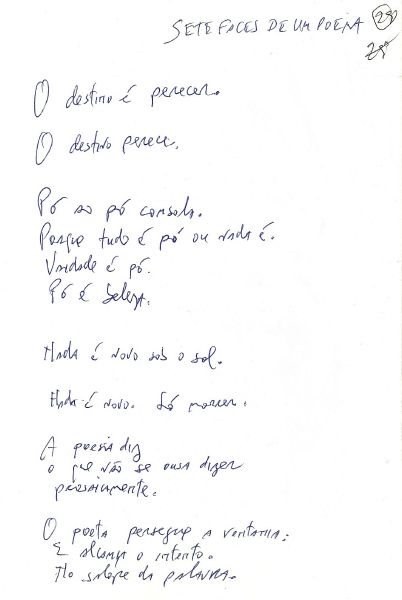 SETE FACES DE UM POEMA
O destino é perecer.
O destino perece.
Pó ao pó consola.
Porque tudo é pó ou nada é.
Vaidade é pó.
Pó é beleza.
Nada é novo sob o sol.
Nada é novo. Só morrer.
A poesia diz
o que não se ousa dizer
prosaicamente.
O poeta persegue a ventania.
E alcança o intento.
No galope da palavra.